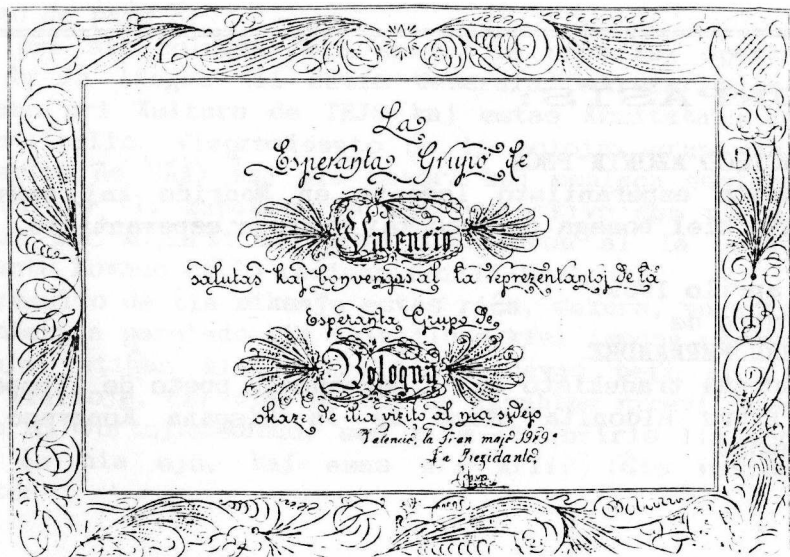 La
Esperanta Grupo de
Valencio
salutas kaj bonvenigas al la reprezentantoj de la
Esperanta Grupo de
Bologna
okaze de ilia vizito al nia sidejo
Valencio, la 1ªn majo 1969ª
La Prezidanto